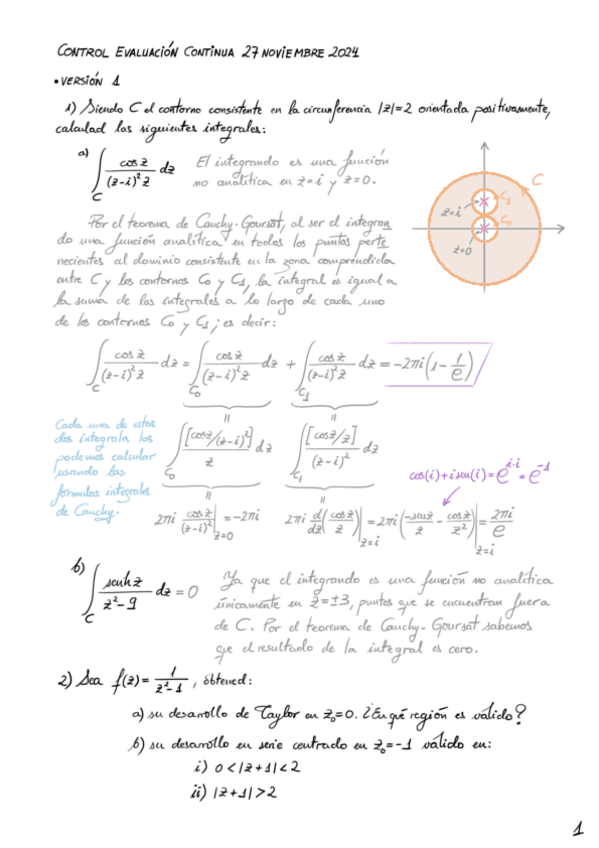 CONTROL EVALUACIÓN CONTINUA 27 NOVIEMBRE 2024
• VERSIÓN 1
1) Siendo C el contorno consistente en la circunferencia |z|=2 orientada positivamente,
calculad las siguientes integrales:
a) ∫_C cos z/((z-i)² z) dz
El integrando es una función
no analítica en z=i y z=0.
C
C₁
C₀
z=i
z=0
Por el teorema de Cauchy-Goursat, al ser el integran
do una función analítica en todos los puntos perte
necientes al dominio consistente en la zona comprendida
entre C y los contornos C₀ y C₁, la integral es igual a
la suma de las integrales a lo largo de cada uno
de los contornos C₀ y C₁; es decir:
∫_C cos z/((z-i)² z) dz = ∫_C₀ cos z/((z-i)² z) dz + ∫_C₁ cos z/((z-i)² z) dz = -2πi(1 - 1/e)
Cada una de estas
dos integrales las
podemos calcular
usando las
fórmulas integrales
de Cauchy.
∫_C₀ [cos z/(z-i)²]/z dz
∫_C₁ [cos z/z]/(z-i)² dz
cos(i)+i sen(i) = e^{i·i} = e^{-1}
2πi cos z/(z-i)² |_{z=0} = -2πi
2πi d/dz(cos z/z)|_{z=i} = 2πi(-sen z/z - cos z/z²)|_{z=i} = 2πi/e
b) ∫_C senh z/(z²-9) dz = 0
Ya que el integrando es una función no analítica
únicamente en z=±3, puntos que se encuentran fuera
de C. Por el teorema de Cauchy-Goursat sabemos
que el resultado de la integral es cero.
2) Sea f(z) = 1/(z²-1), obtened:
a) su desarrollo de Taylor en z₀=0. ¿En qué región es válido?
b) su desarrollo en serie centrado en z₀=-1 válido en:
i) 0<|z+1|<2
ii) |z+1|>2
1